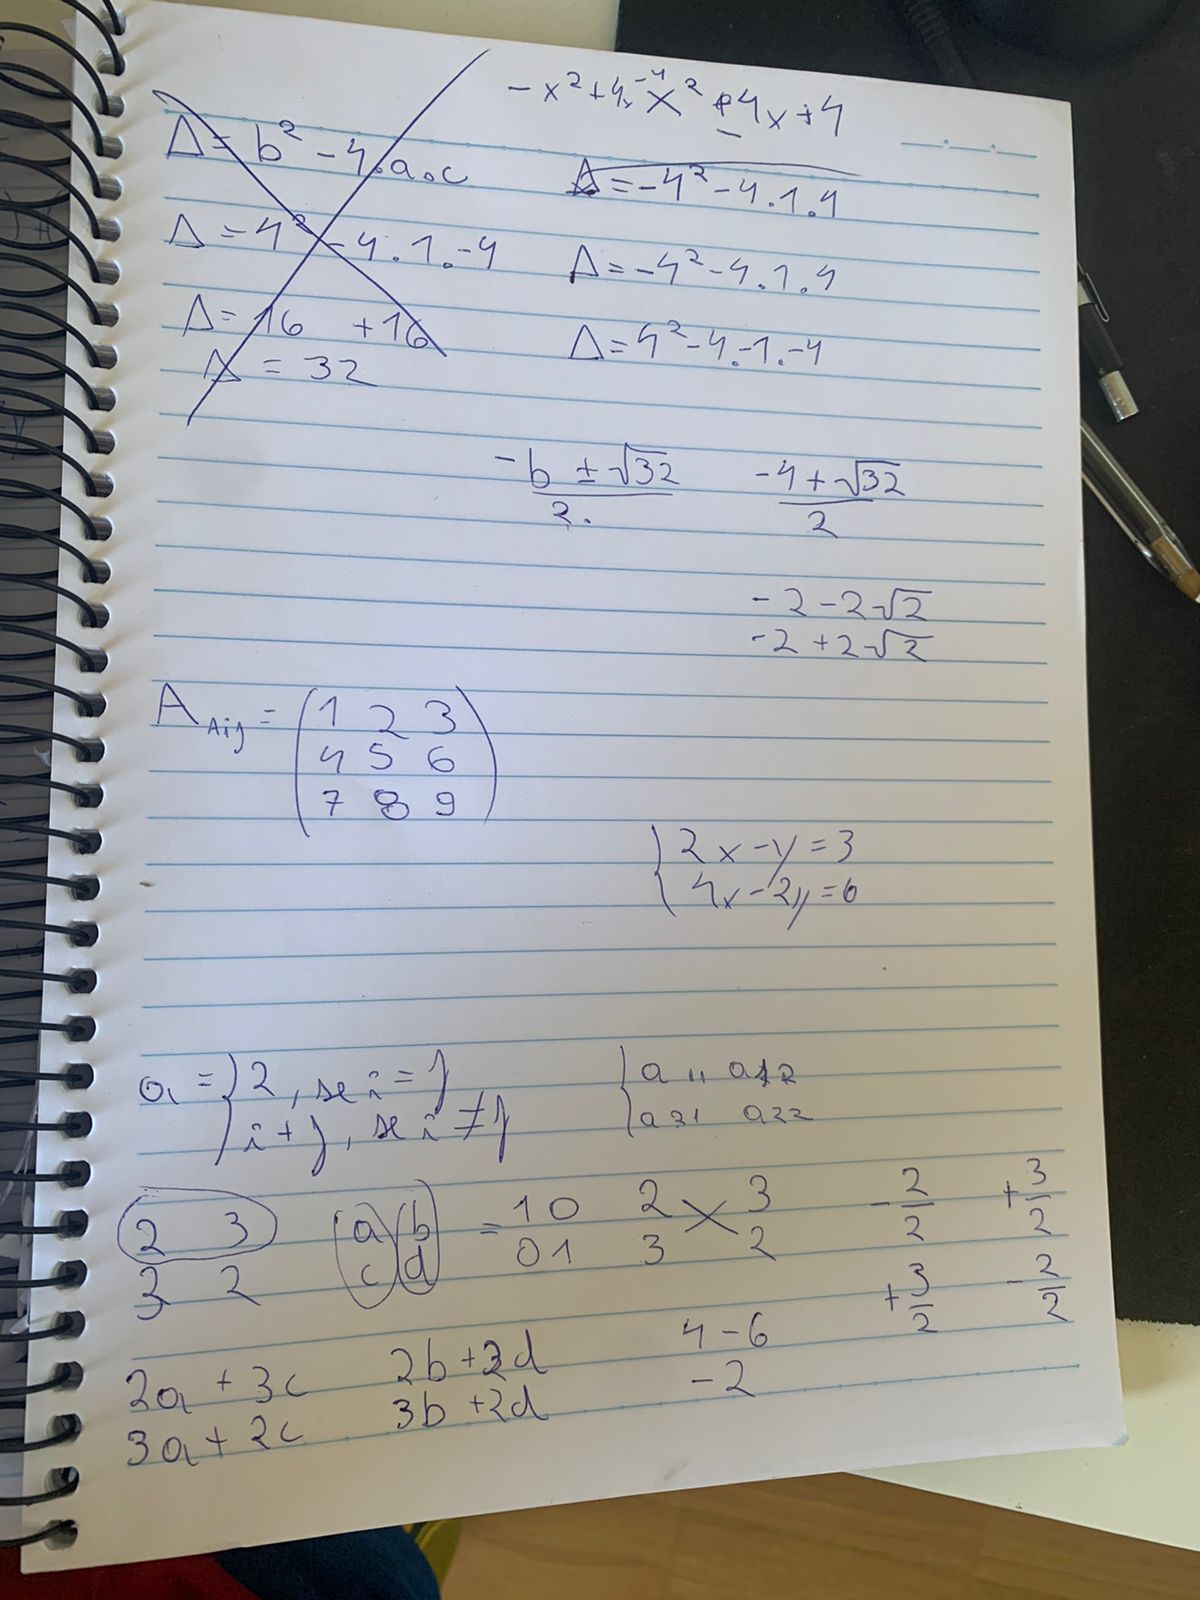 -x² + 4x - 4 x² + 4x + 4
Δ = b² - 4.a.c
Δ = -4² - 4.1.4
Δ = 4² - 4.1.-4
Δ = -4² - 4.1.4
Δ = 16 +16
Δ = 4² - 4.-1.-4
Δ = 32
-b ± √32 -4 + √32
2. 2
-2 - 2√2
-2 + 2√2
A Aij = ( 1 2 3
4 5 6
7 8 9 )
{ 2x - y = 3
4x - 2y = 6
a = { 2, se i = j
i + j, se i ≠ j
{ a11 a12
a21 a22
2 3 (a b = 1 0 2 3 -2/2 +3/2
3 2 c d) 0 1 3 2 +3/2 -2/2
2a + 3c 2b + 3d 4 - 6
3a + 2c 3b + 2d -2